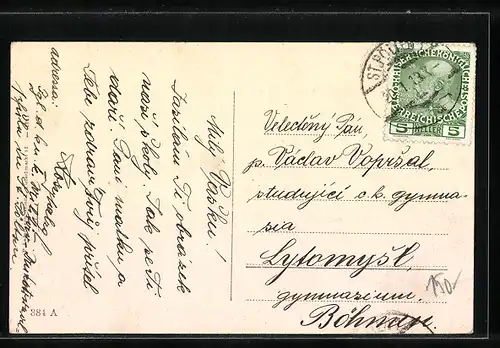 Milý Vašku!
Zasílám Ti obrázek
naší školy. Jak se Ti
daří. Paní matku a
Tebe pozdravuje Tvůj přítel
adressa:
Velectěný Pán,
p. Václav Vopršal,
studující c. k. gymna-
sia
Lytomyšl,
gymnasium.
Böhmen.
ST. PÖLTEN
KAISERLICHE KÖNIGLICHE
OESTERREICHISCHE POST
5 HELLER 5
150.-
384 A